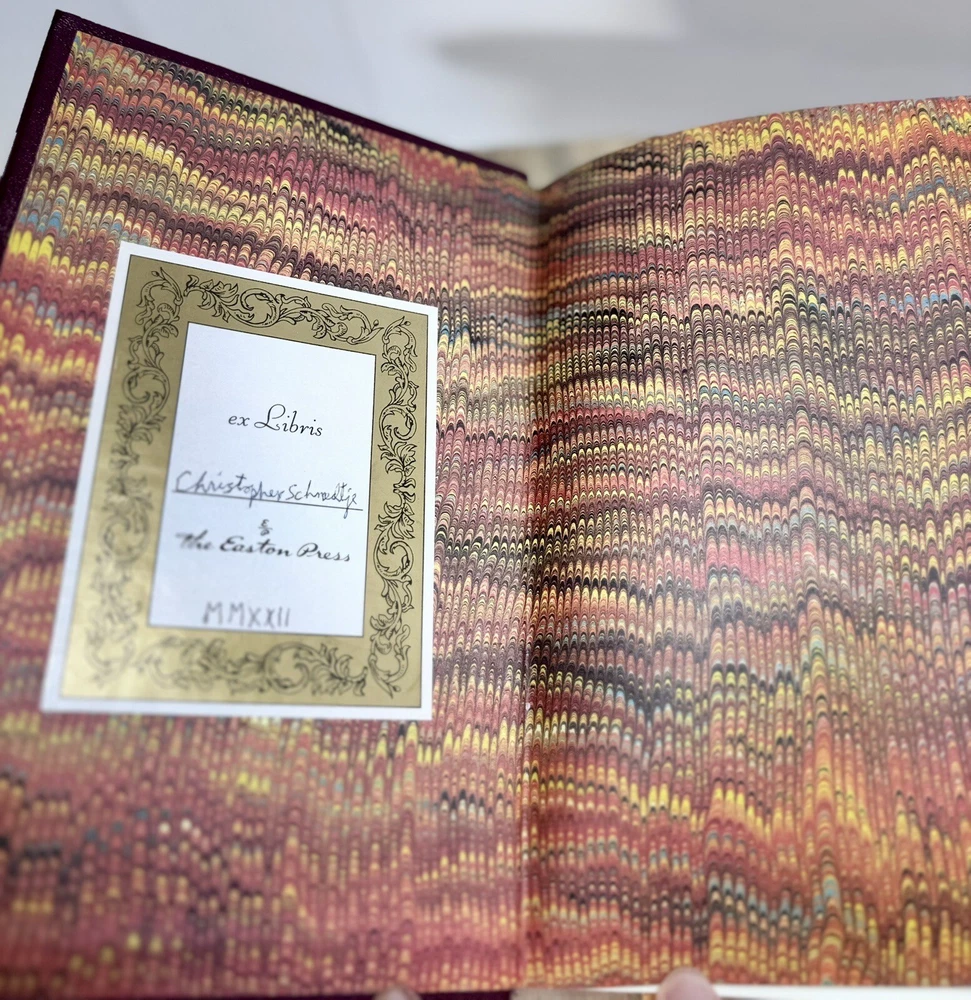 ex Libris
Christopher Schmeltje
&
The Easton Press
MMXXII